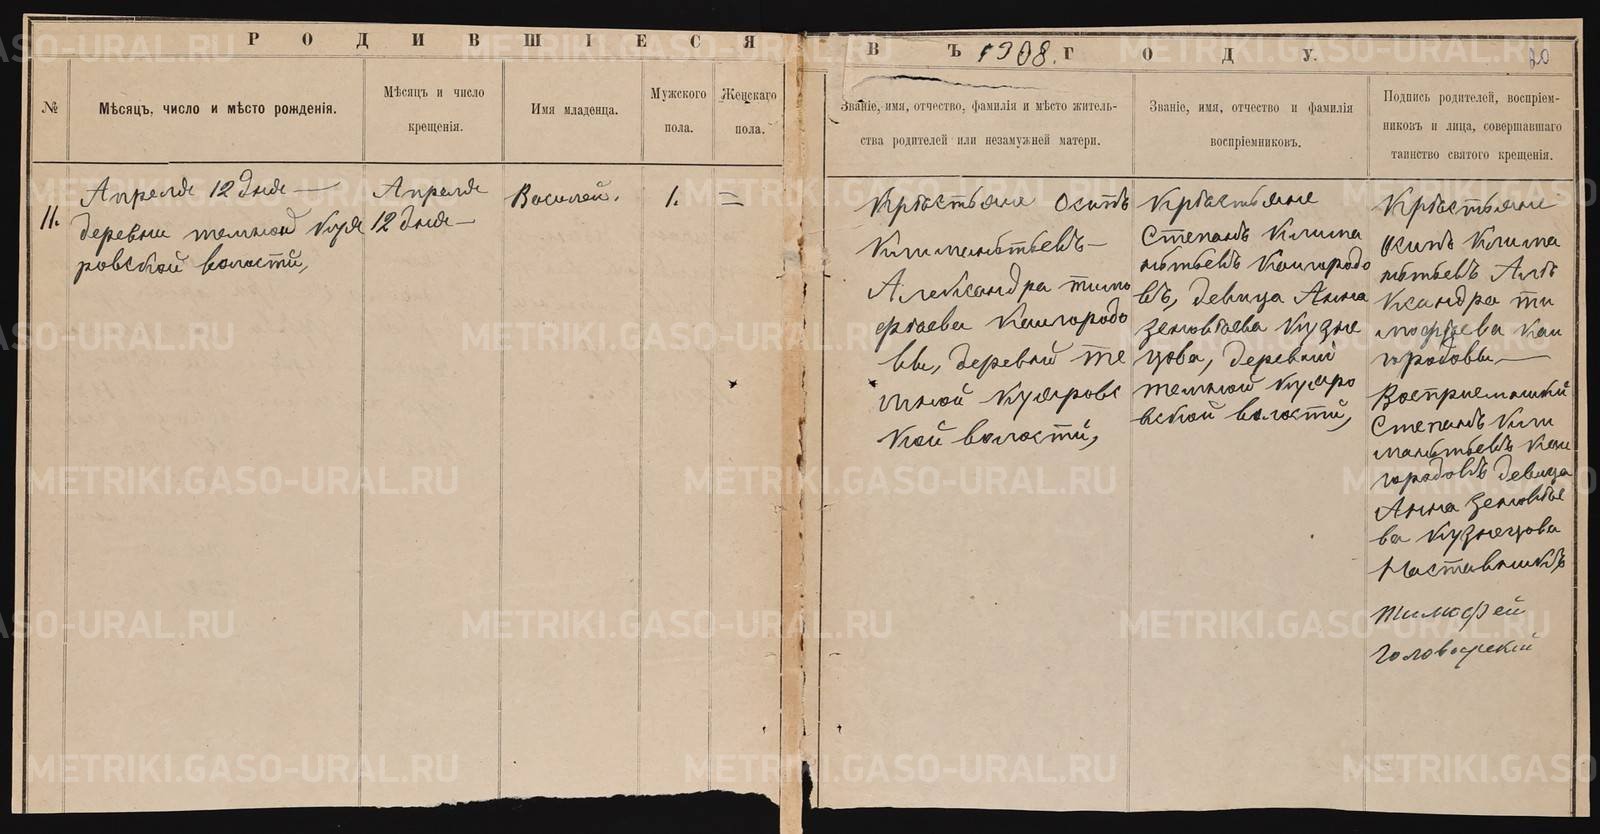 РОДИВШІЕСЯ
ВЪ 1908. ГОДУ.
20
№
Мѣсяцъ, число и мѣсто рожденія.
Мѣсяцъ и число
крещенія.
Имя младенца.
Мужского
пола.
Женскаго
пола.
Званіе, имя, отчество, фамилія и мѣсто житель-
ства родителей или незамужней матери.
Званіе, имя, отчество и фамилія
воспріемниковъ.
Подпись родителей, воспріем-
никовъ и лица, совершавшаго
таинство святого крещенія.
11.
Апреля 12 дня —
деревни темной Куя
ровской волости,
Апреля
12 дня —
Василей.
1.
=
Кръстьяне Осипъ
Климѣньтьевъ —
Александра тимо
фѣева Каигородо
вы, деревни те
мной Куяровс
кой волости,
Кръстьяне
Степанъ Клима
нѣтьевъ Каигородо
въ, девица Анна
Зеновѣева Кузне
цова, деревни
темной Куяро
вской волости,
Кръстьяне
осипъ Клима
нѣтьевъ Алѣ
ксандра ти
мофѣева Каи
городовы —
Восприемникий
Степанъ Кли
манѣтьевъ Каи
городовъ девица
Анна Зеновѣе
ва Кузнецова
Наставникъ
тимофей
METRIKI.GASO-URAL.RU